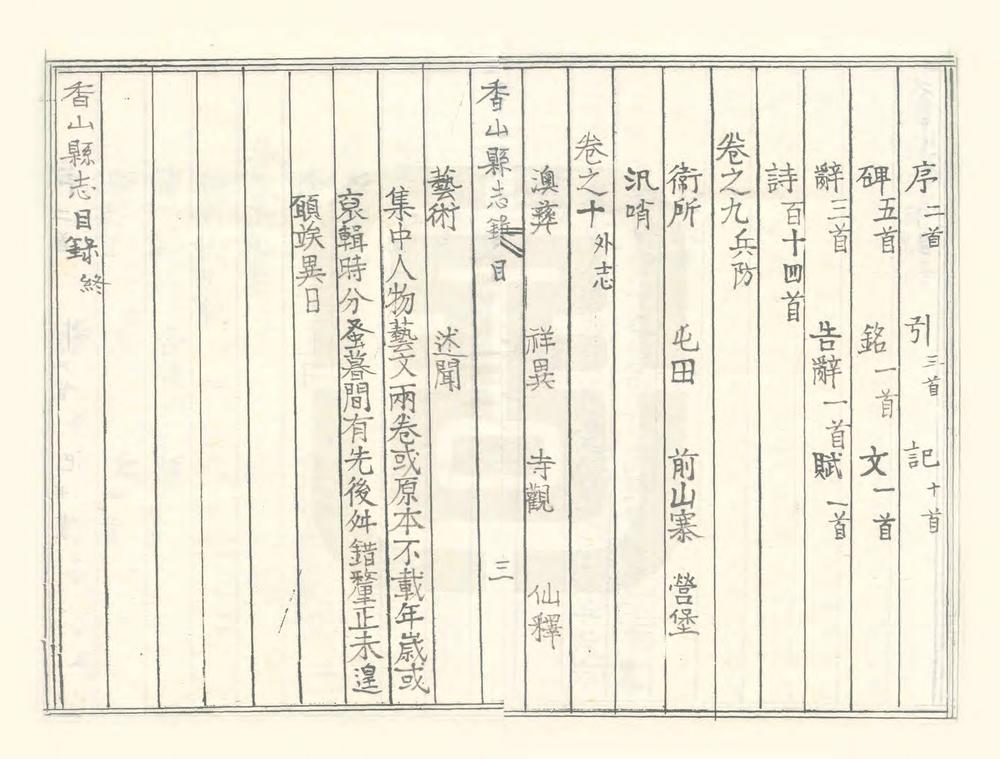 序二首 引三首 記十首
碑五首 銘一首 文一首
辭三首 告辭一首 賦一首
詩百十四首
卷之九 兵防
衛所 屯田 前山寨 營堡
汛哨
卷之十 外志
澳彝 祥異 寺觀 仙釋
香山縣志 目 三
藝術 述聞
集中人物藝文兩卷或原本不載年嵗或
裒輯時分蚤暮間有先後舛錯釐正未遑
頣竢異日
香山縣志目錄終